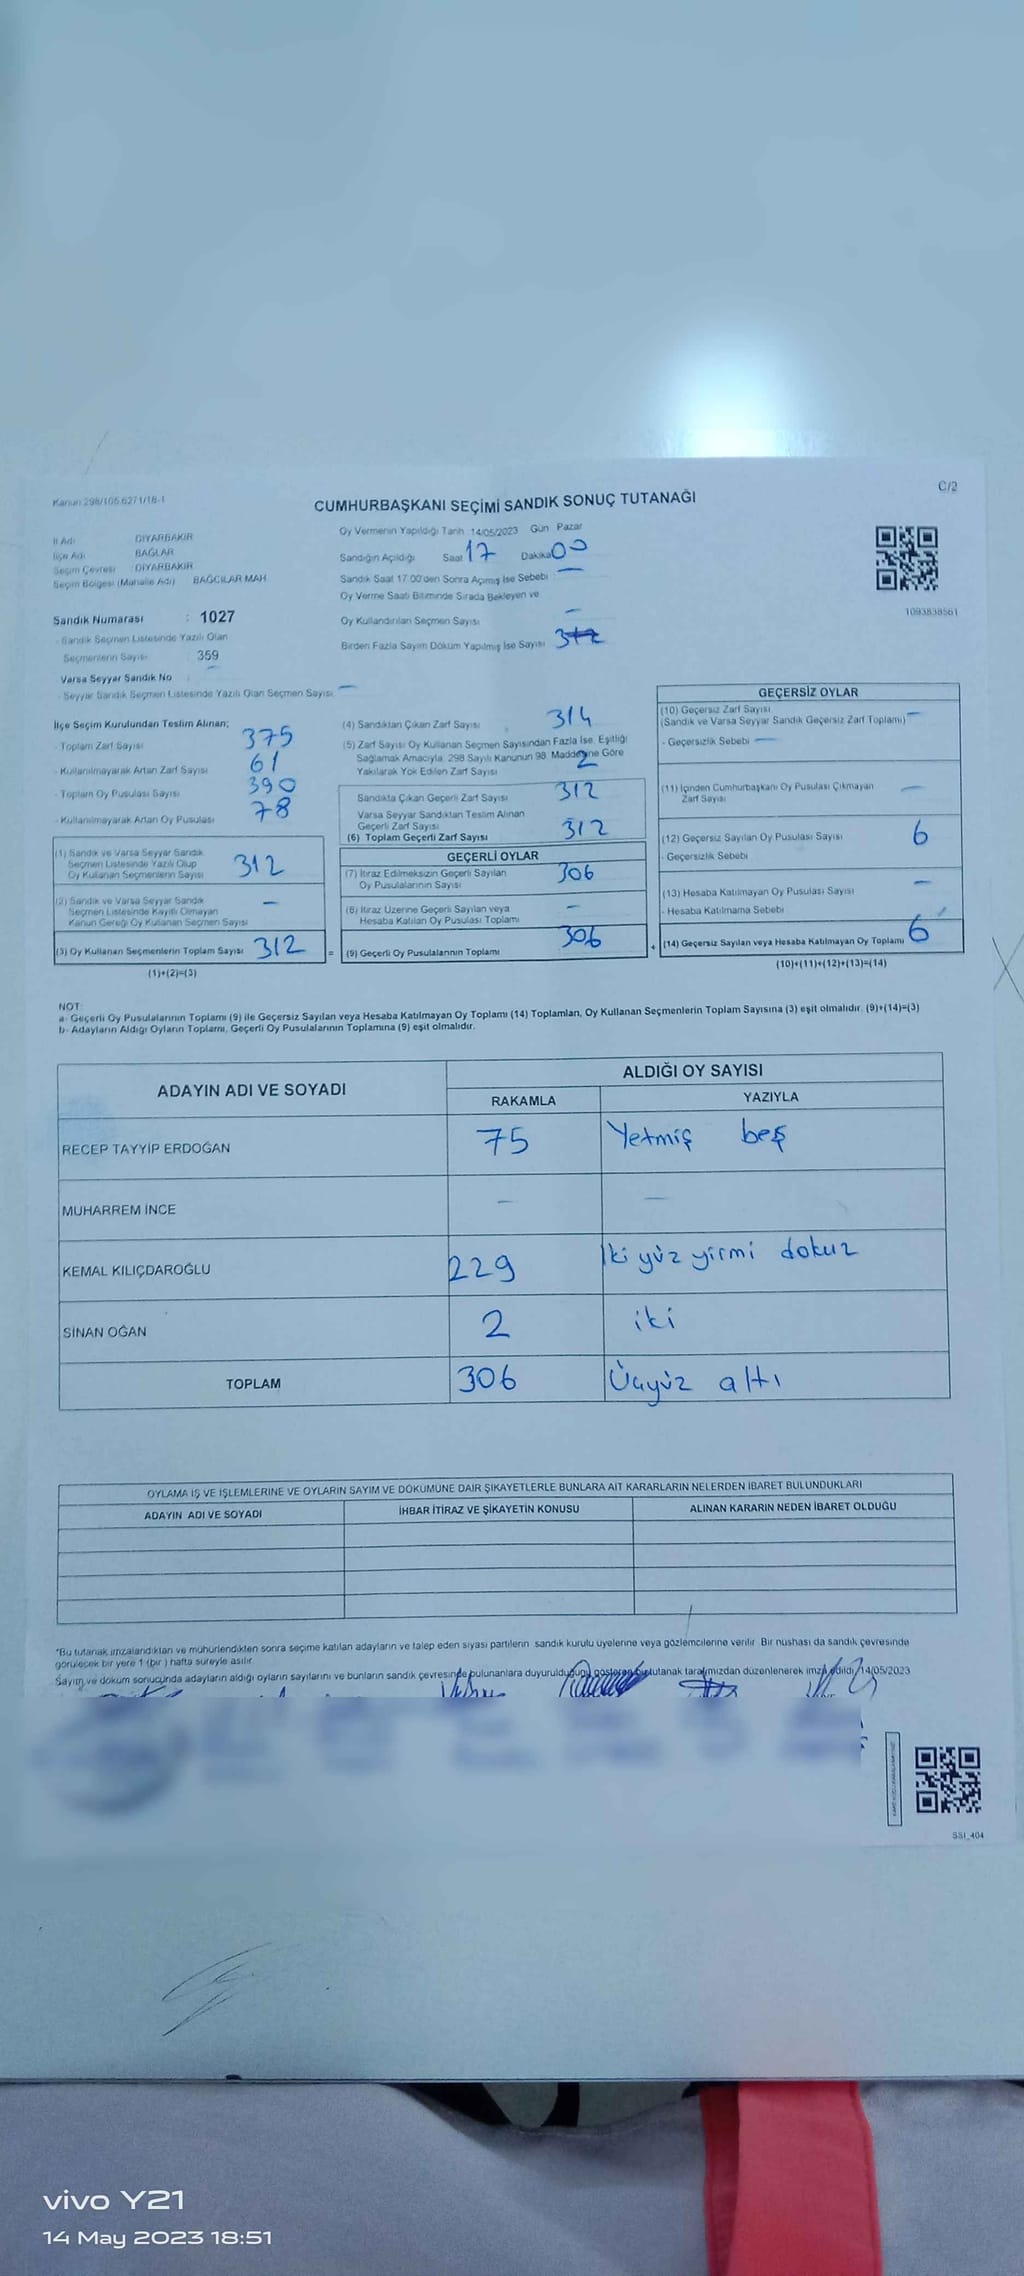 Kanun 298/105,6271/18-1
C/2
CUMHURBAŞKANI SEÇİMİ SANDIK SONUÇ TUTANAĞI
İl Adı : DİYARBAKIR
İlçe Adı : BAĞLAR
Seçim Çevresi : DİYARBAKIR
Seçim Bölgesi (Mahalle Adı) BAĞCILAR MAH.
Sandık Numarası : 1027
- Sandık Seçmen Listesinde Yazılı Olan
Seçmenlerin Sayısı : 359
Varsa Seyyar Sandık No : –
- Seyyar Sandık Seçmen Listesinde Yazılı Olan Seçmen Sayısı : –
Oy Vermenin Yapıldığı Tarih 14/05/2023 Gün Pazar
Sandığın Açıldığı Saat 17 Dakika 00
Sandık Saat 17:00'den Sonra Açılmış İse Sebebi : –
Oy Verme Saati Bitiminde Sırada Bekleyen ve
Oy Kullandırılan Seçmen Sayısı –
Birden Fazla Sayım Döküm Yapılmış İse Sayısı 312
1093838561
İlçe Seçim Kurulundan Teslim Alınan;
- Toplam Zarf Sayısı 375
- Kullanılmayarak Artan Zarf Sayısı 61
- Toplam Oy Pusulası Sayısı 390
- Kullanılmayarak Artan Oy Pusulası 78
(1) Sandık ve Varsa Seyyar Sandık
Seçmen Listesinde Yazılı Olup
Oy Kullanan Seçmenlerin Sayısı 312
(2) Sandık ve Varsa Seyyar Sandık
Seçmen Listesinde Kayıtlı Olmayan
Kanun Gereği Oy Kullanan Seçmen Sayısı –
(3) Oy Kullanan Seçmenlerin Toplam Sayısı 312
(1)+(2)=(3)
(4) Sandıktan Çıkan Zarf Sayısı 314
(5) Zarf Sayısı Oy Kullanan Seçmen Sayısından Fazla İse, Eşitliği
Sağlamak Amacıyla, 298 Sayılı Kanunun 98. Maddesine Göre
Yakılarak Yok Edilen Zarf Sayısı 2
Sandıkta Çıkan Geçerli Zarf Sayısı 312
Varsa Seyyar Sandıktan Teslim Alınan
Geçerli Zarf Sayısı
(6) Toplam Geçerli Zarf Sayısı 312
GEÇERLİ OYLAR
(7) İtiraz Edilmeksizin Geçerli Sayılan
Oy Pusulalarının Sayısı 306
(8) İtiraz Üzerine Geçerli Sayılan veya
Hesaba Katılan Oy Pusulası Toplamı –
= (9) Geçerli Oy Pusulalarının Toplamı 306 +
GEÇERSİZ OYLAR
(10) Geçersiz Zarf Sayısı
(Sandık ve Varsa Seyyar Sandık Geçersiz Zarf Toplamı) –
- Geçersizlik Sebebi –
(11) İçinden Cumhurbaşkanı Oy Pusulası Çıkmayan
Zarf Sayısı –
(12) Geçersiz Sayılan Oy Pusulası Sayısı 6
- Geçersizlik Sebebi
(13) Hesaba Katılmayan Oy Pusulası Sayısı –
- Hesaba Katılmama Sebebi
(14) Geçersiz Sayılan veya Hesaba Katılmayan Oy Toplamı 6
(10)+(11)+(12)+(13)=(14)
NOT:
a- Geçerli Oy Pusulalarının Toplamı (9) ile Geçersiz Sayılan veya Hesaba Katılmayan Oy Toplamı (14) Toplamları, Oy Kullanan Seçmenlerin Toplam Sayısına (3) eşit olmalıdır. (9)+(14)=(3)
b- Adayların Aldığı Oyların Toplamı, Geçerli Oy Pusulalarının Toplamına (9) eşit olmalıdır.
ADAYIN ADI VE SOYADI
ALDIĞI OY SAYISI
RAKAMLA YAZIYLA
RECEP TAYYİP ERDOĞAN 75 Yetmiş beş
MUHARREM İNCE – –
KEMAL KILIÇDAROĞLU 229 İki yüz yirmi dokuz
SİNAN OĞAN 2 iki
TOPLAM 306 Üçyüz altı
OYLAMA İŞ VE İŞLEMLERİNE VE OYLARIN SAYIM VE DÖKÜMÜNE DAİR ŞİKAYETLERLE BUNLARA AİT KARARLARIN NELERDEN İBARET BULUNDUKLARI
ADAYIN ADI VE SOYADI İHBAR İTİRAZ VE ŞİKAYETİN KONUSU ALINAN KARARIN NEDEN İBARET OLDUĞU
*Bu tutanak imzalandıktan ve mühürlendikten sonra seçime katılan adayların ve talep eden siyasi partilerin sandık kurulu üyelerine veya gözlemcilerine verilir. Bir nüshası da sandık çevresinde
görülecek bir yere 1 (bir ) hafta süreyle asılır.
Sayım ve döküm sonucunda adayların aldığı oyların sayılarını ve bunların sandık çevresinde bulunanlara duyurulduğunu gösteren bu tutanak tarafımızdan düzenlenerek imza edildi. 14/05/2023
SSI_404
vivo Y21
14 May 2023 18:51